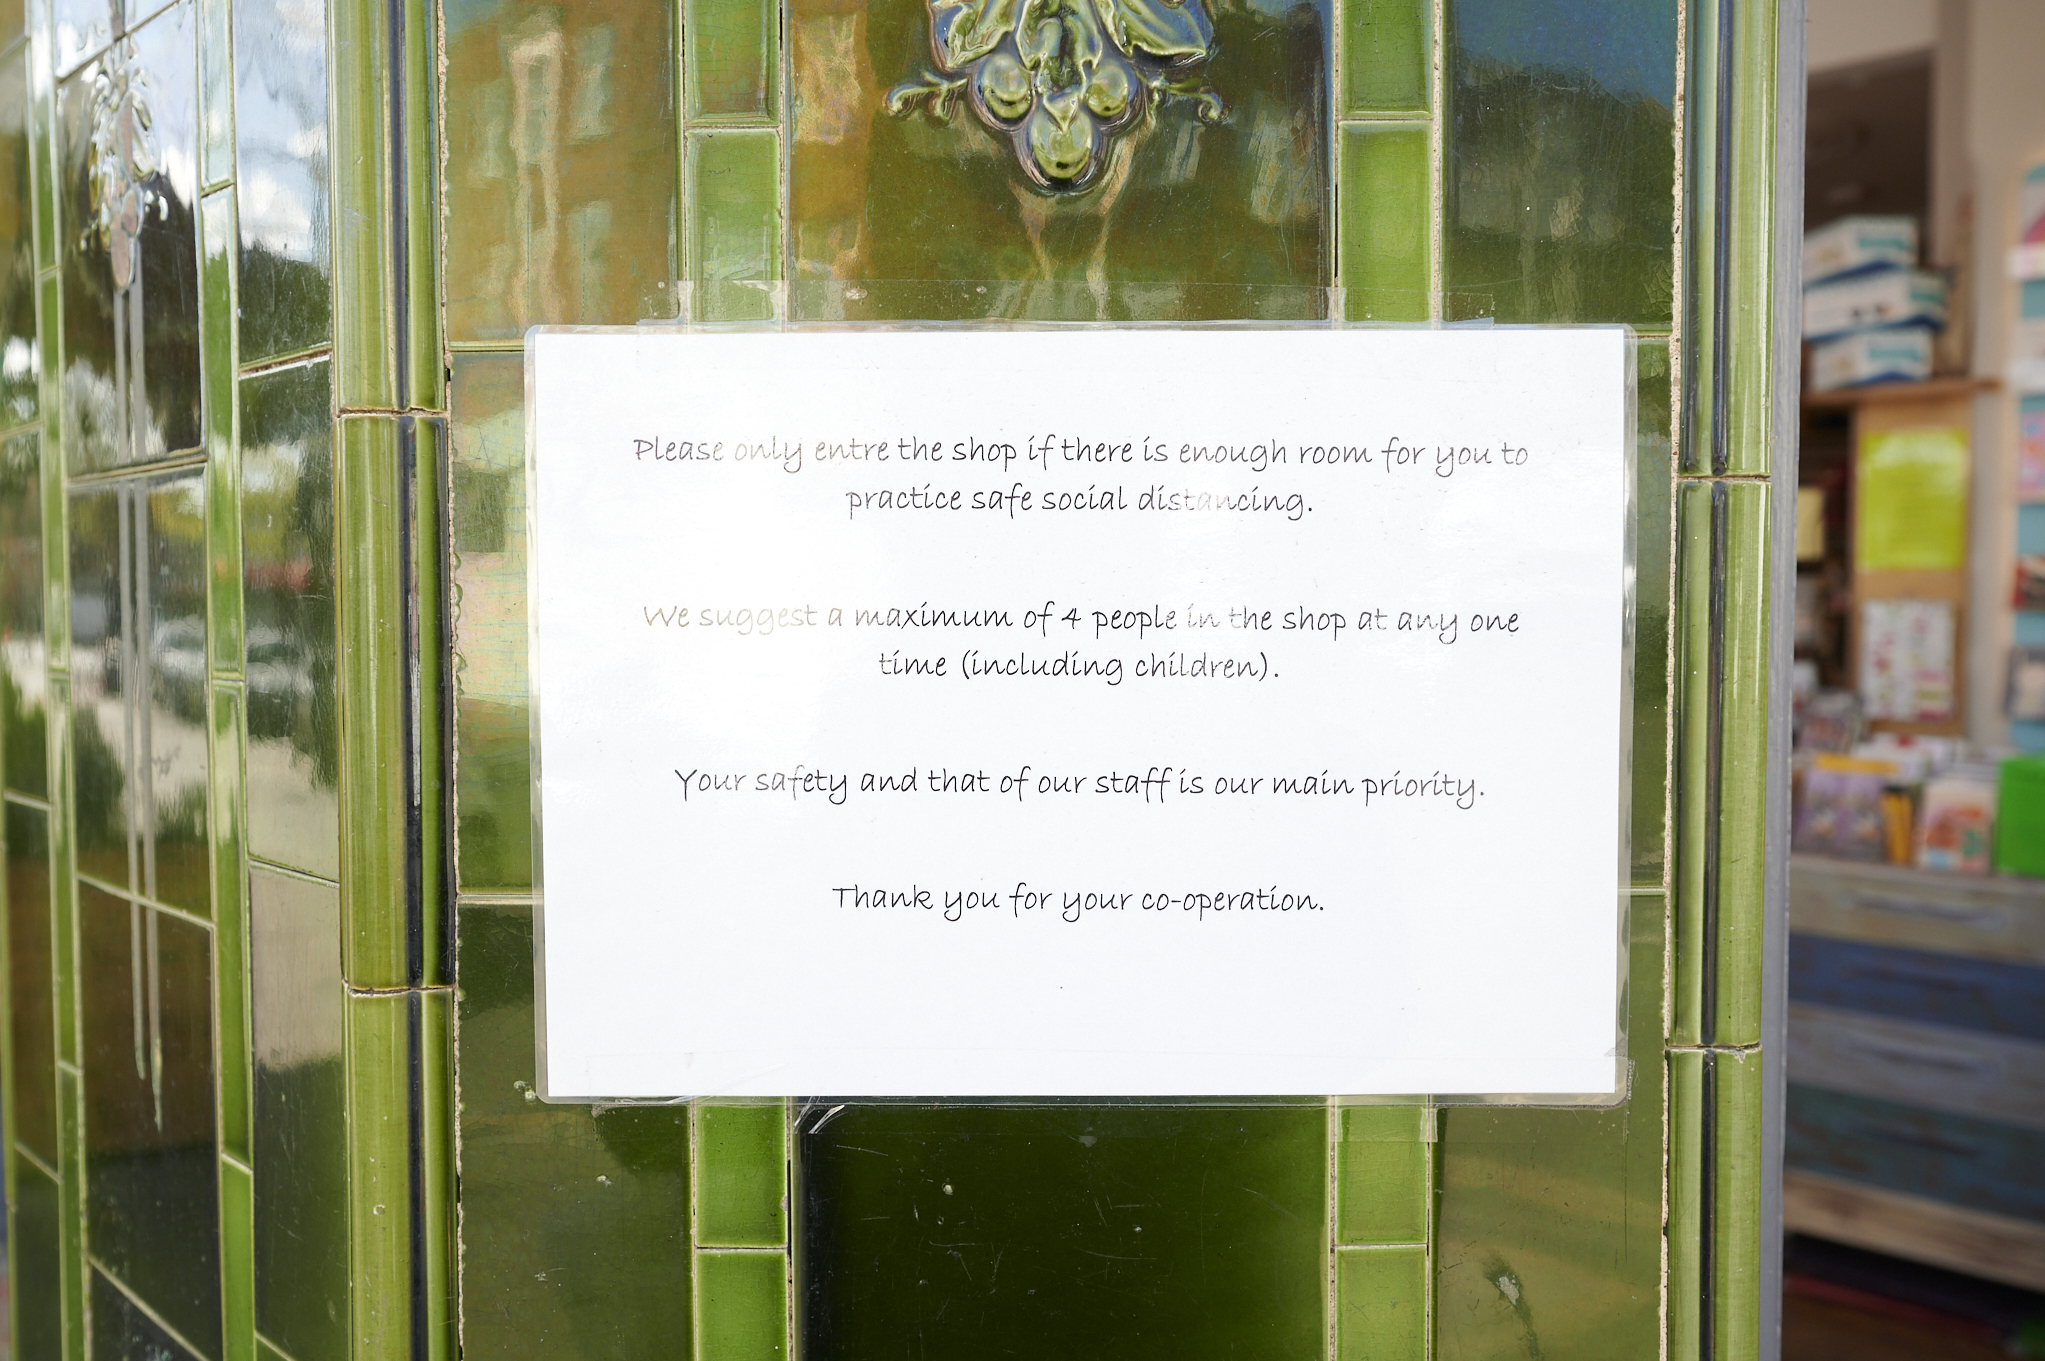 Please only entre the shop if there is enough room for you to
practice safe social distancing.
We suggest a maximum of 4 people in the shop at any one
time (including children).
Your safety and that of our staff is our main priority.
Thank you for your co-operation.